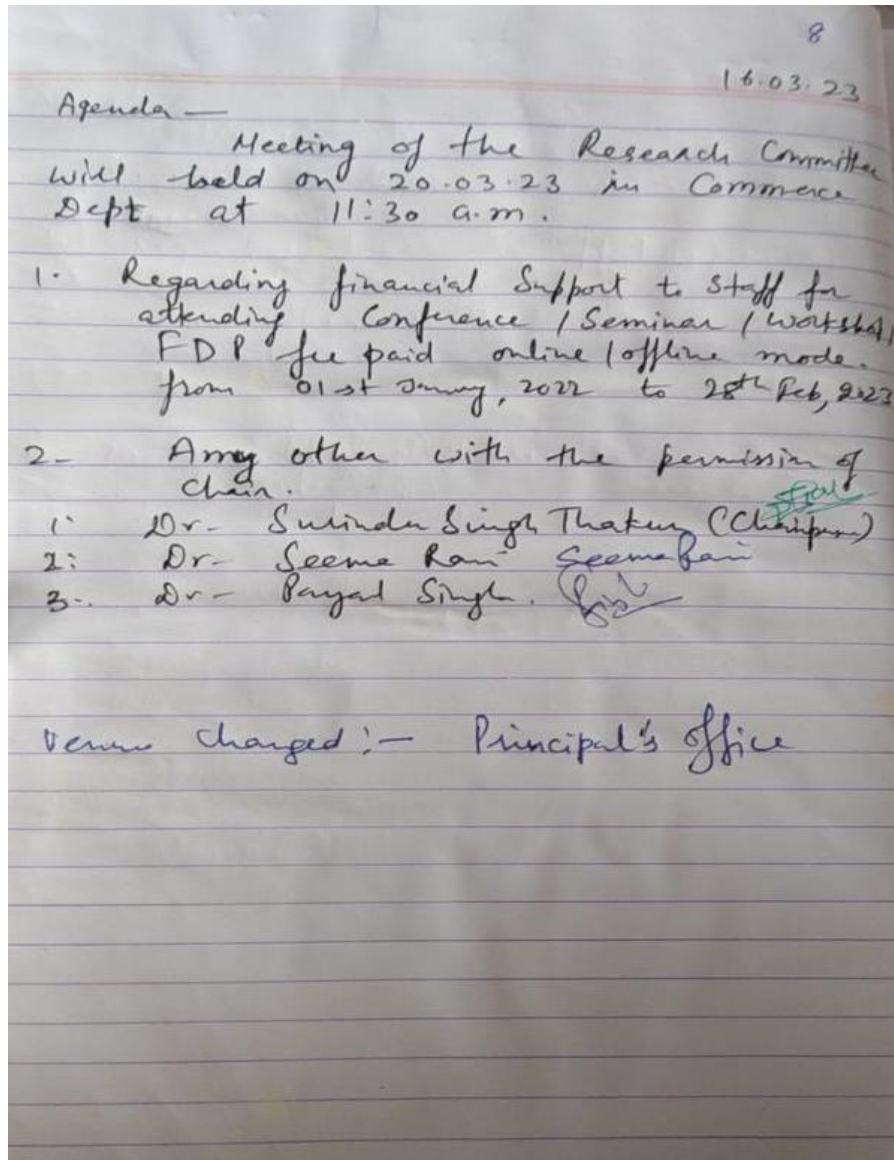 8
16.03.23
Agenda —
Meeting of the Research Committee
will held on 20.03.23 in Commerce
Dept at 11:30 a.m.
1. Regarding financial Support to Staff for
attending Conference / Seminar / Workshop/
FDP fee paid online/offline mode.
from 01st January, 2022 to 28th Feb, 2023
2- Any other with the permission of
Chain.
1. Dr- Surinder Singh Thakur (Chairperson)
2: Dr- Seema Rani Seema Rani
3-. Dr- Payal Singh.
Venue changed:- Principal's office